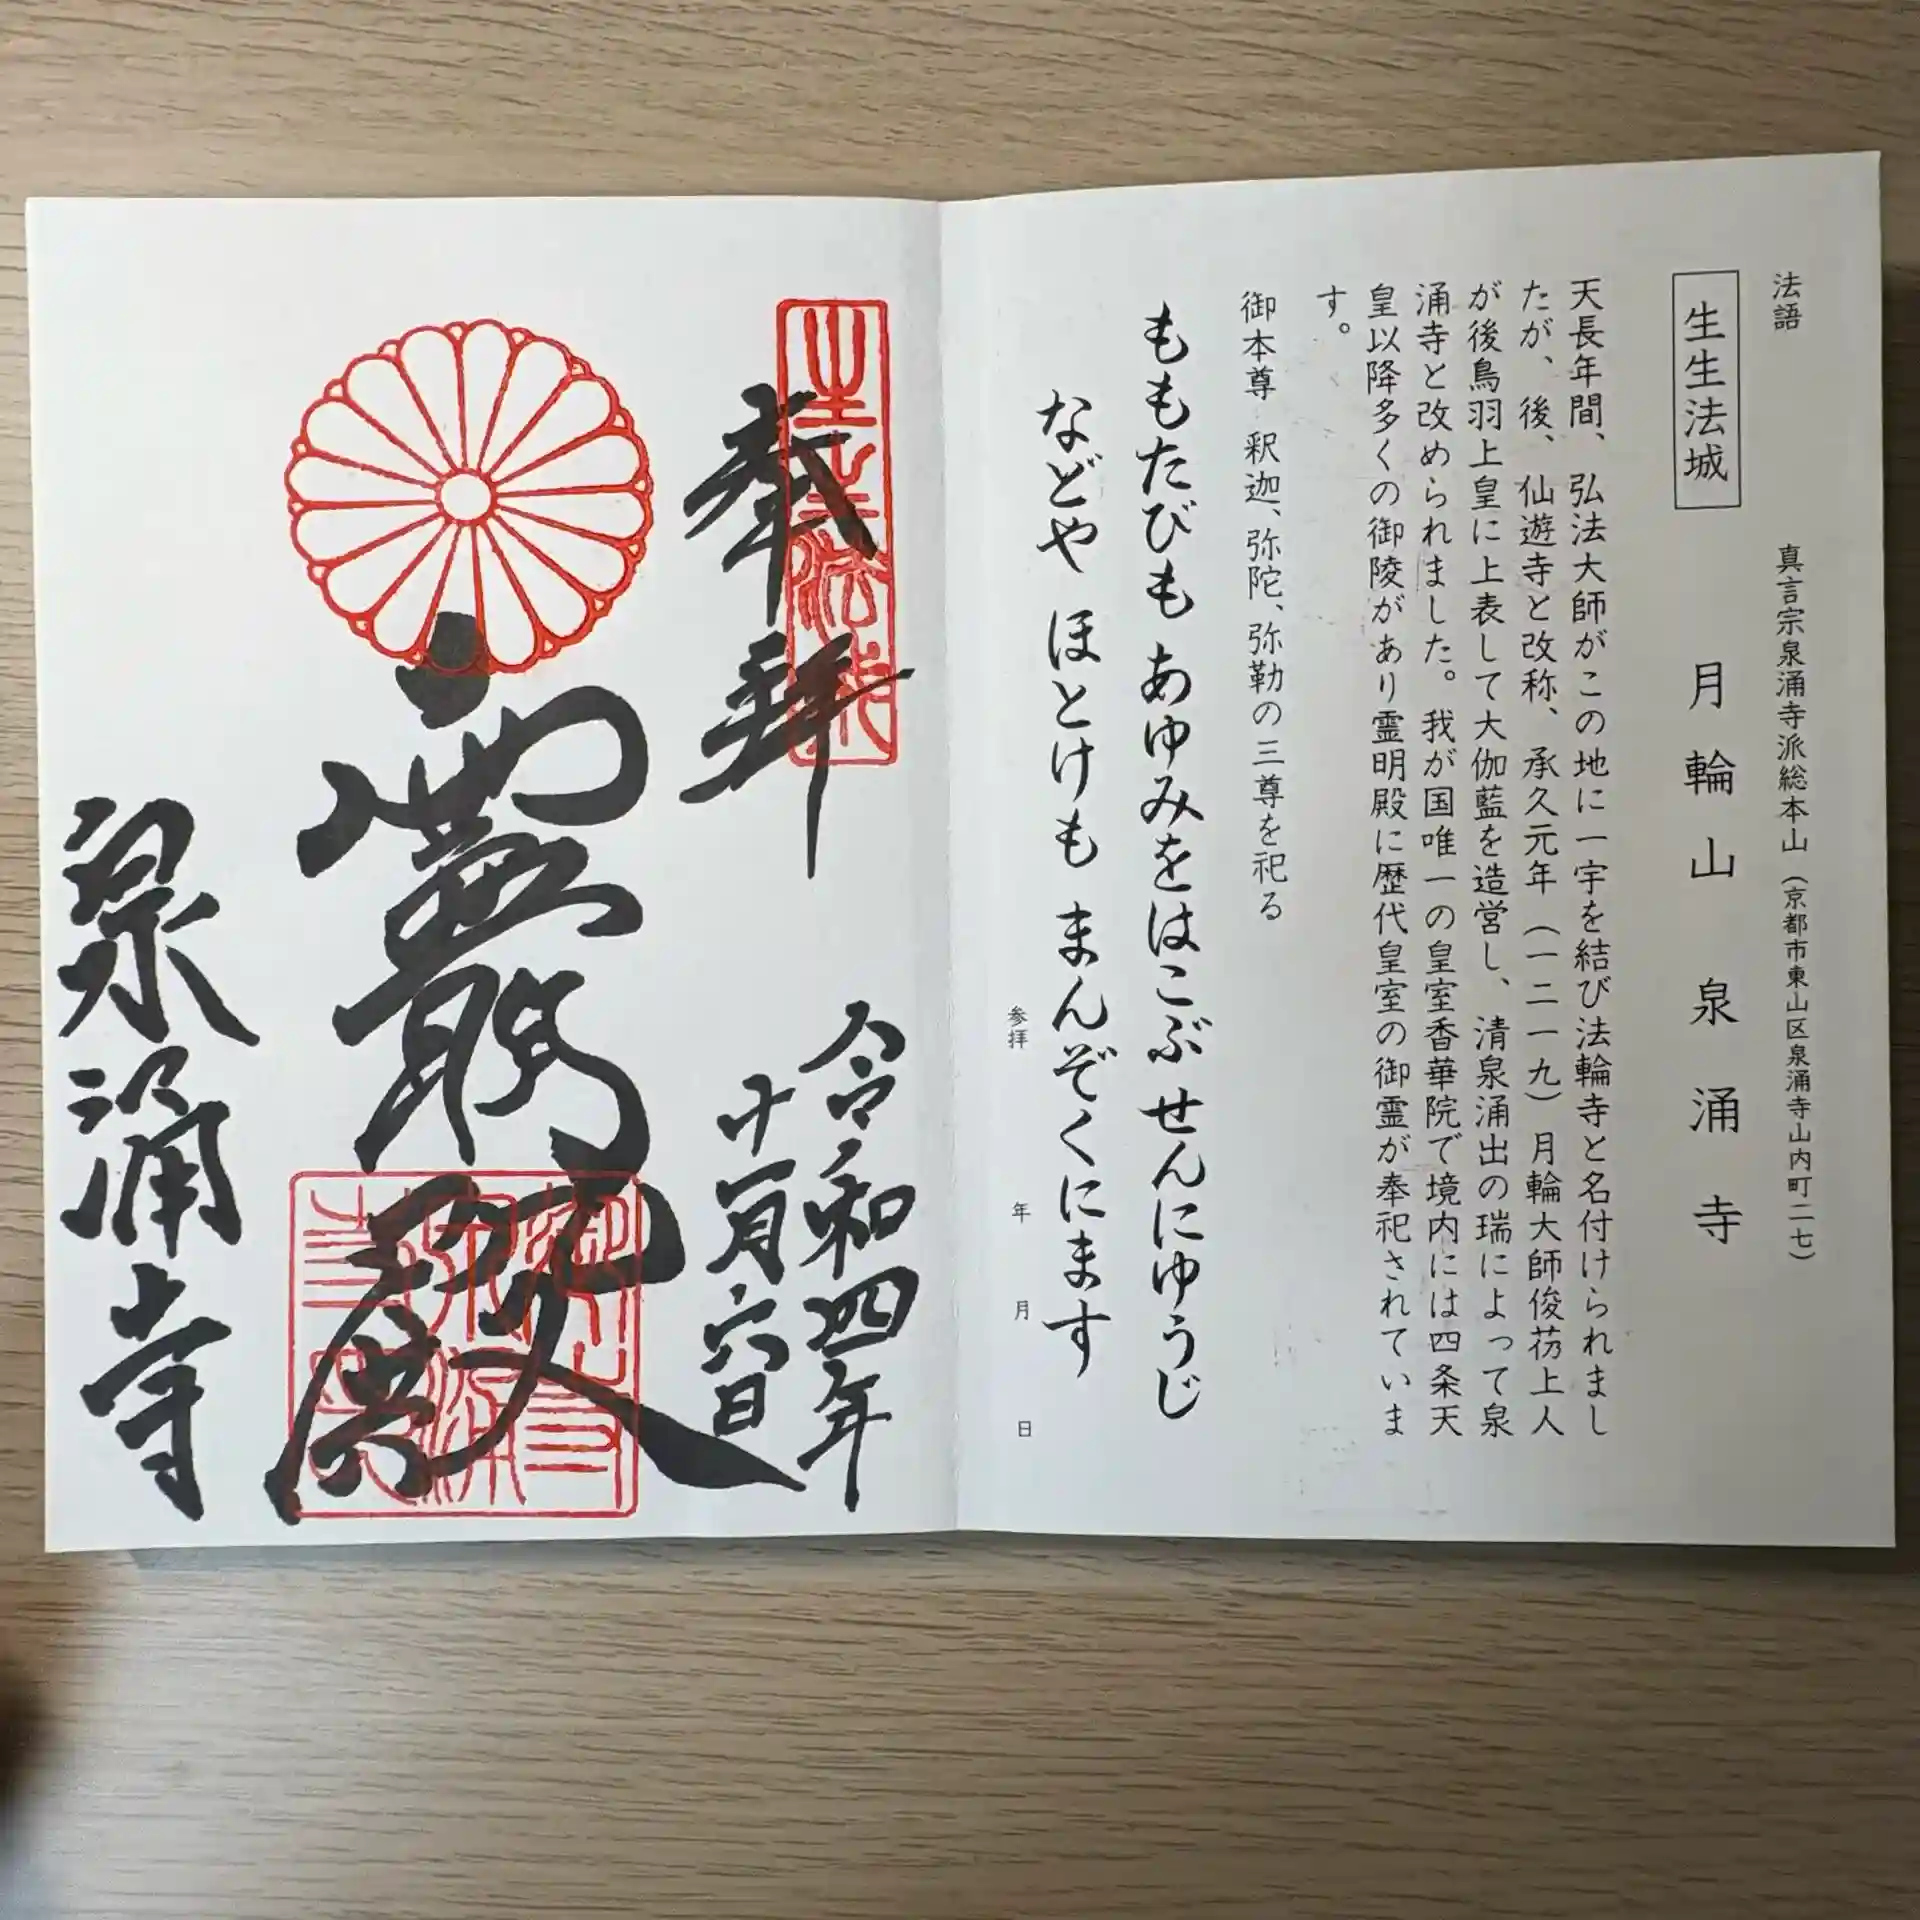 法語
真言宗泉涌寺派総本山（京都市東山区泉涌寺山内町二七）
生生法城
月輪山 泉涌寺
天長年間、弘法大師がこの地に一宇を結び法輪寺と名付けられまし
たが、後、仙遊寺と改称、承久元年（一二一九）月輪大師俊芿上人
が後鳥羽上皇に上表して大伽藍を造営し、清泉涌出の瑞によって泉
涌寺と改められました。我が国唯一の皇室香華院で境内には四条天
皇以降多くの御陵があり霊明殿に歴代皇室の御霊が奉祀されていま
す。
御本尊 釈迦、弥陀、弥勒の三尊を祀る
ももたびも あゆみをはこぶ せんにゆうじ
などや ほとけも まんぞくにます
参拝 年 月 日
生生法城
奉拝
令和四年
十一月六日
霊明殿
泉涌寺